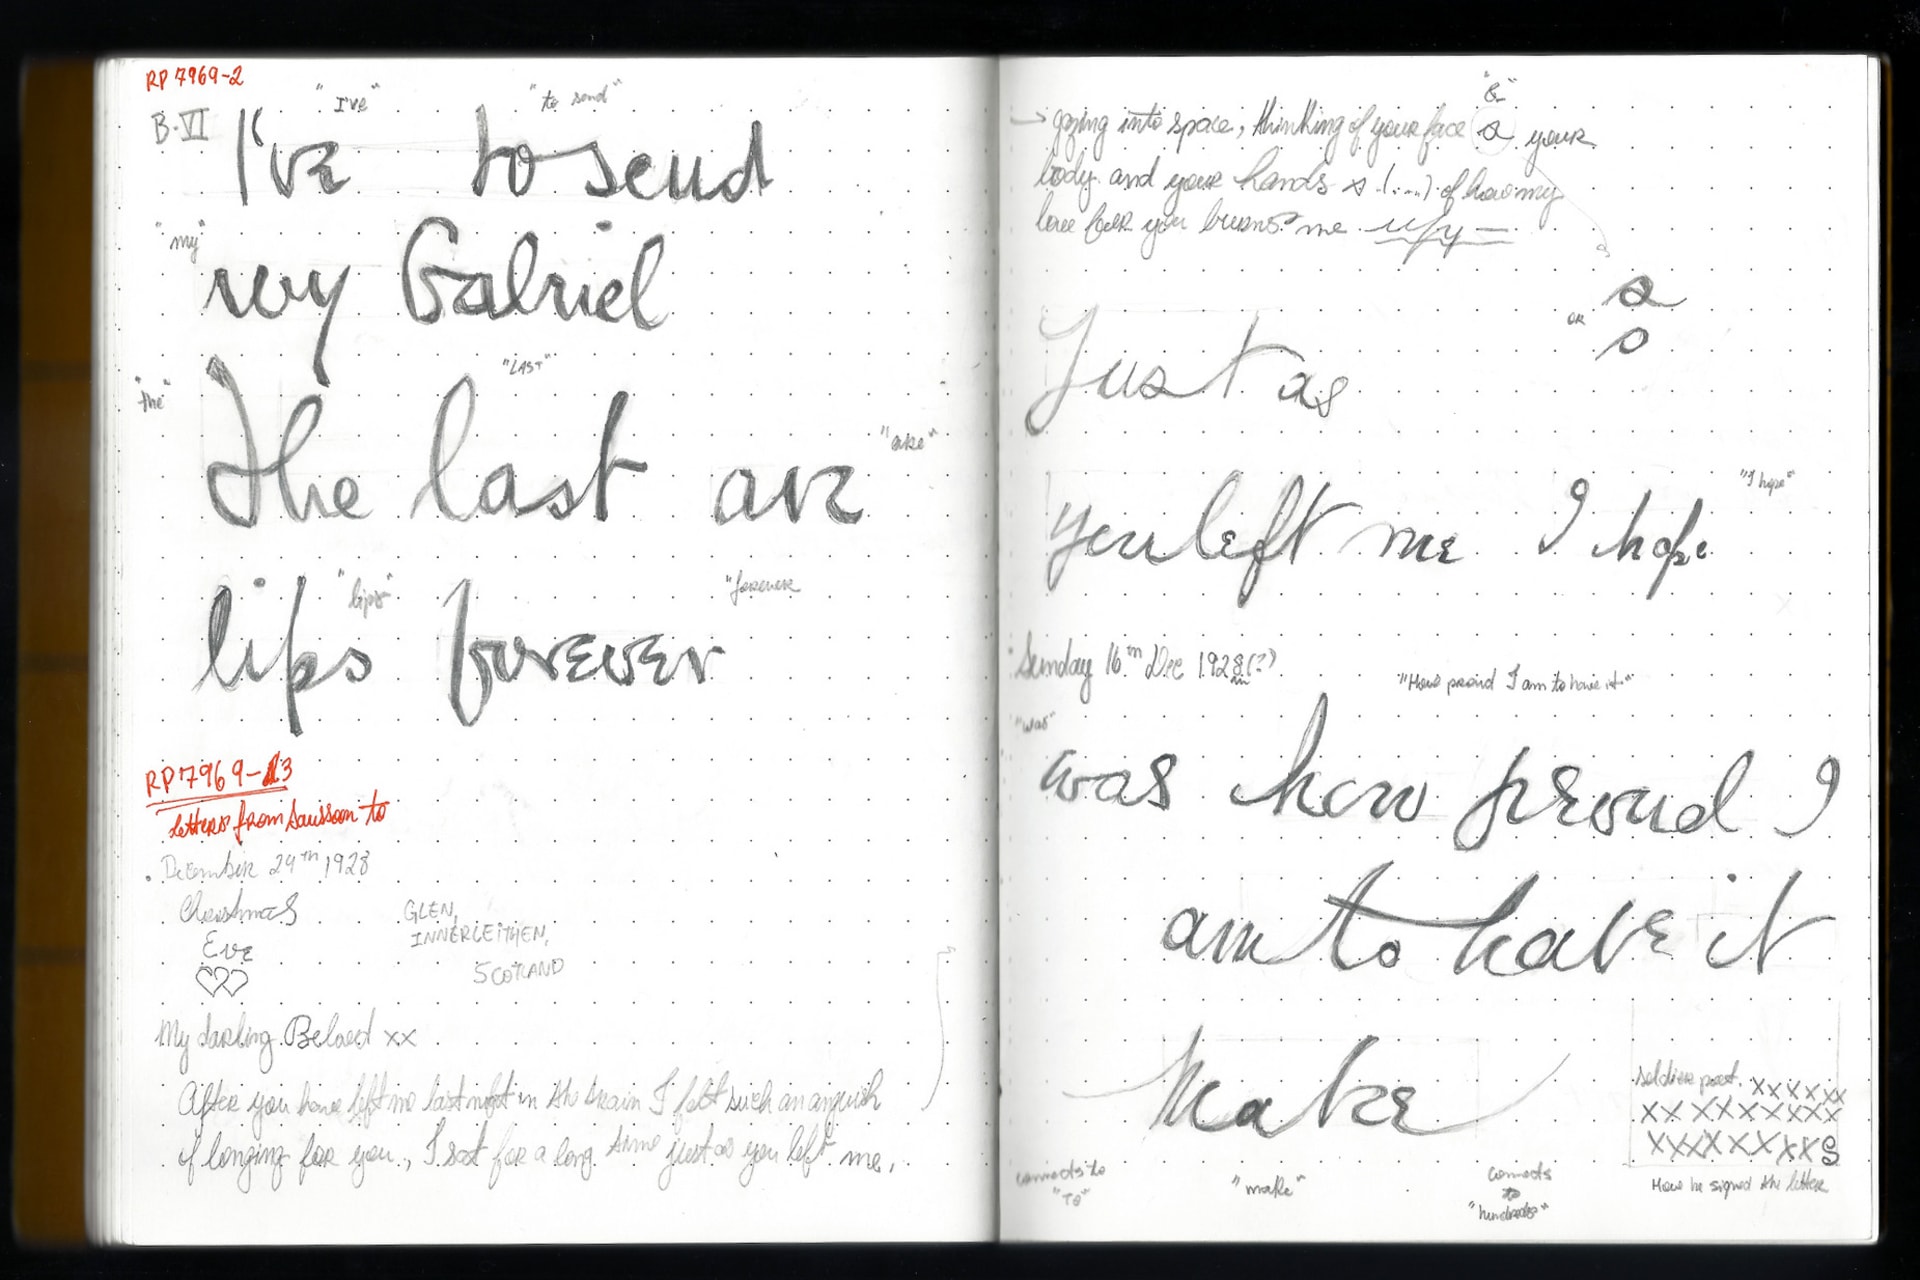 RP 7969-2
B-VI
"I've" "to send"
I've to send
"my"
my Gabriel
"LAST"
"the"
The last are "are"
"lips" "forever"
lips forever
RP 7969-13
letters from Sassoon to
. December 24th, 1928
Christmas
Eve
GLEN,
INNERLEITHEN,
SCOTLAND
My darling Beloved xx
After you have left me last night in the train I felt such an anguish
of longing for you, I sat for a long time just as you left me,
"&"
→ gazing into space, thinking of your face & your
body and your hands & (....) of how my
love for you burns me
or
Just as
"I hope"
you left me I hope
Sunday 16th Dec 1928(?)
"How proud I am to have it"
"was"
was how proud I
am to have it
Make
soldier poet. XXXXXX
XX XXXXXXXX
XXXXXXXXS
How he signed the letter
connects to
"To"
"make"
connects
to
"hundreds"